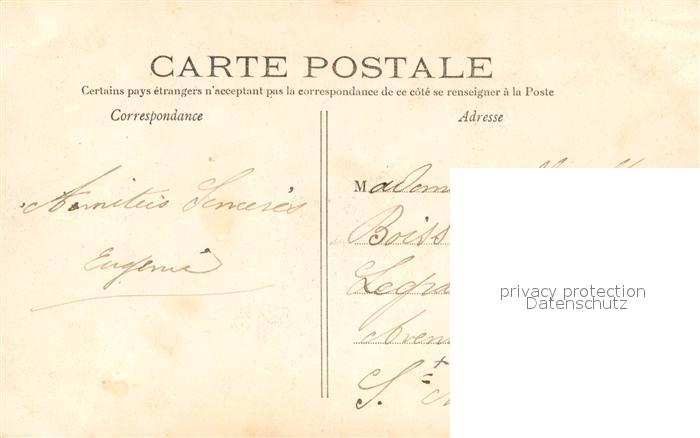 CARTE POSTALE
Certains pays étrangers n'acceptant pas la correspondance de ce côté se renseigner à la Poste
Correspondance
Adresse
Amitiés Sincères
Eugénie
Boiss
Legra
Aven
S.t
privacy protection
Datenschutz